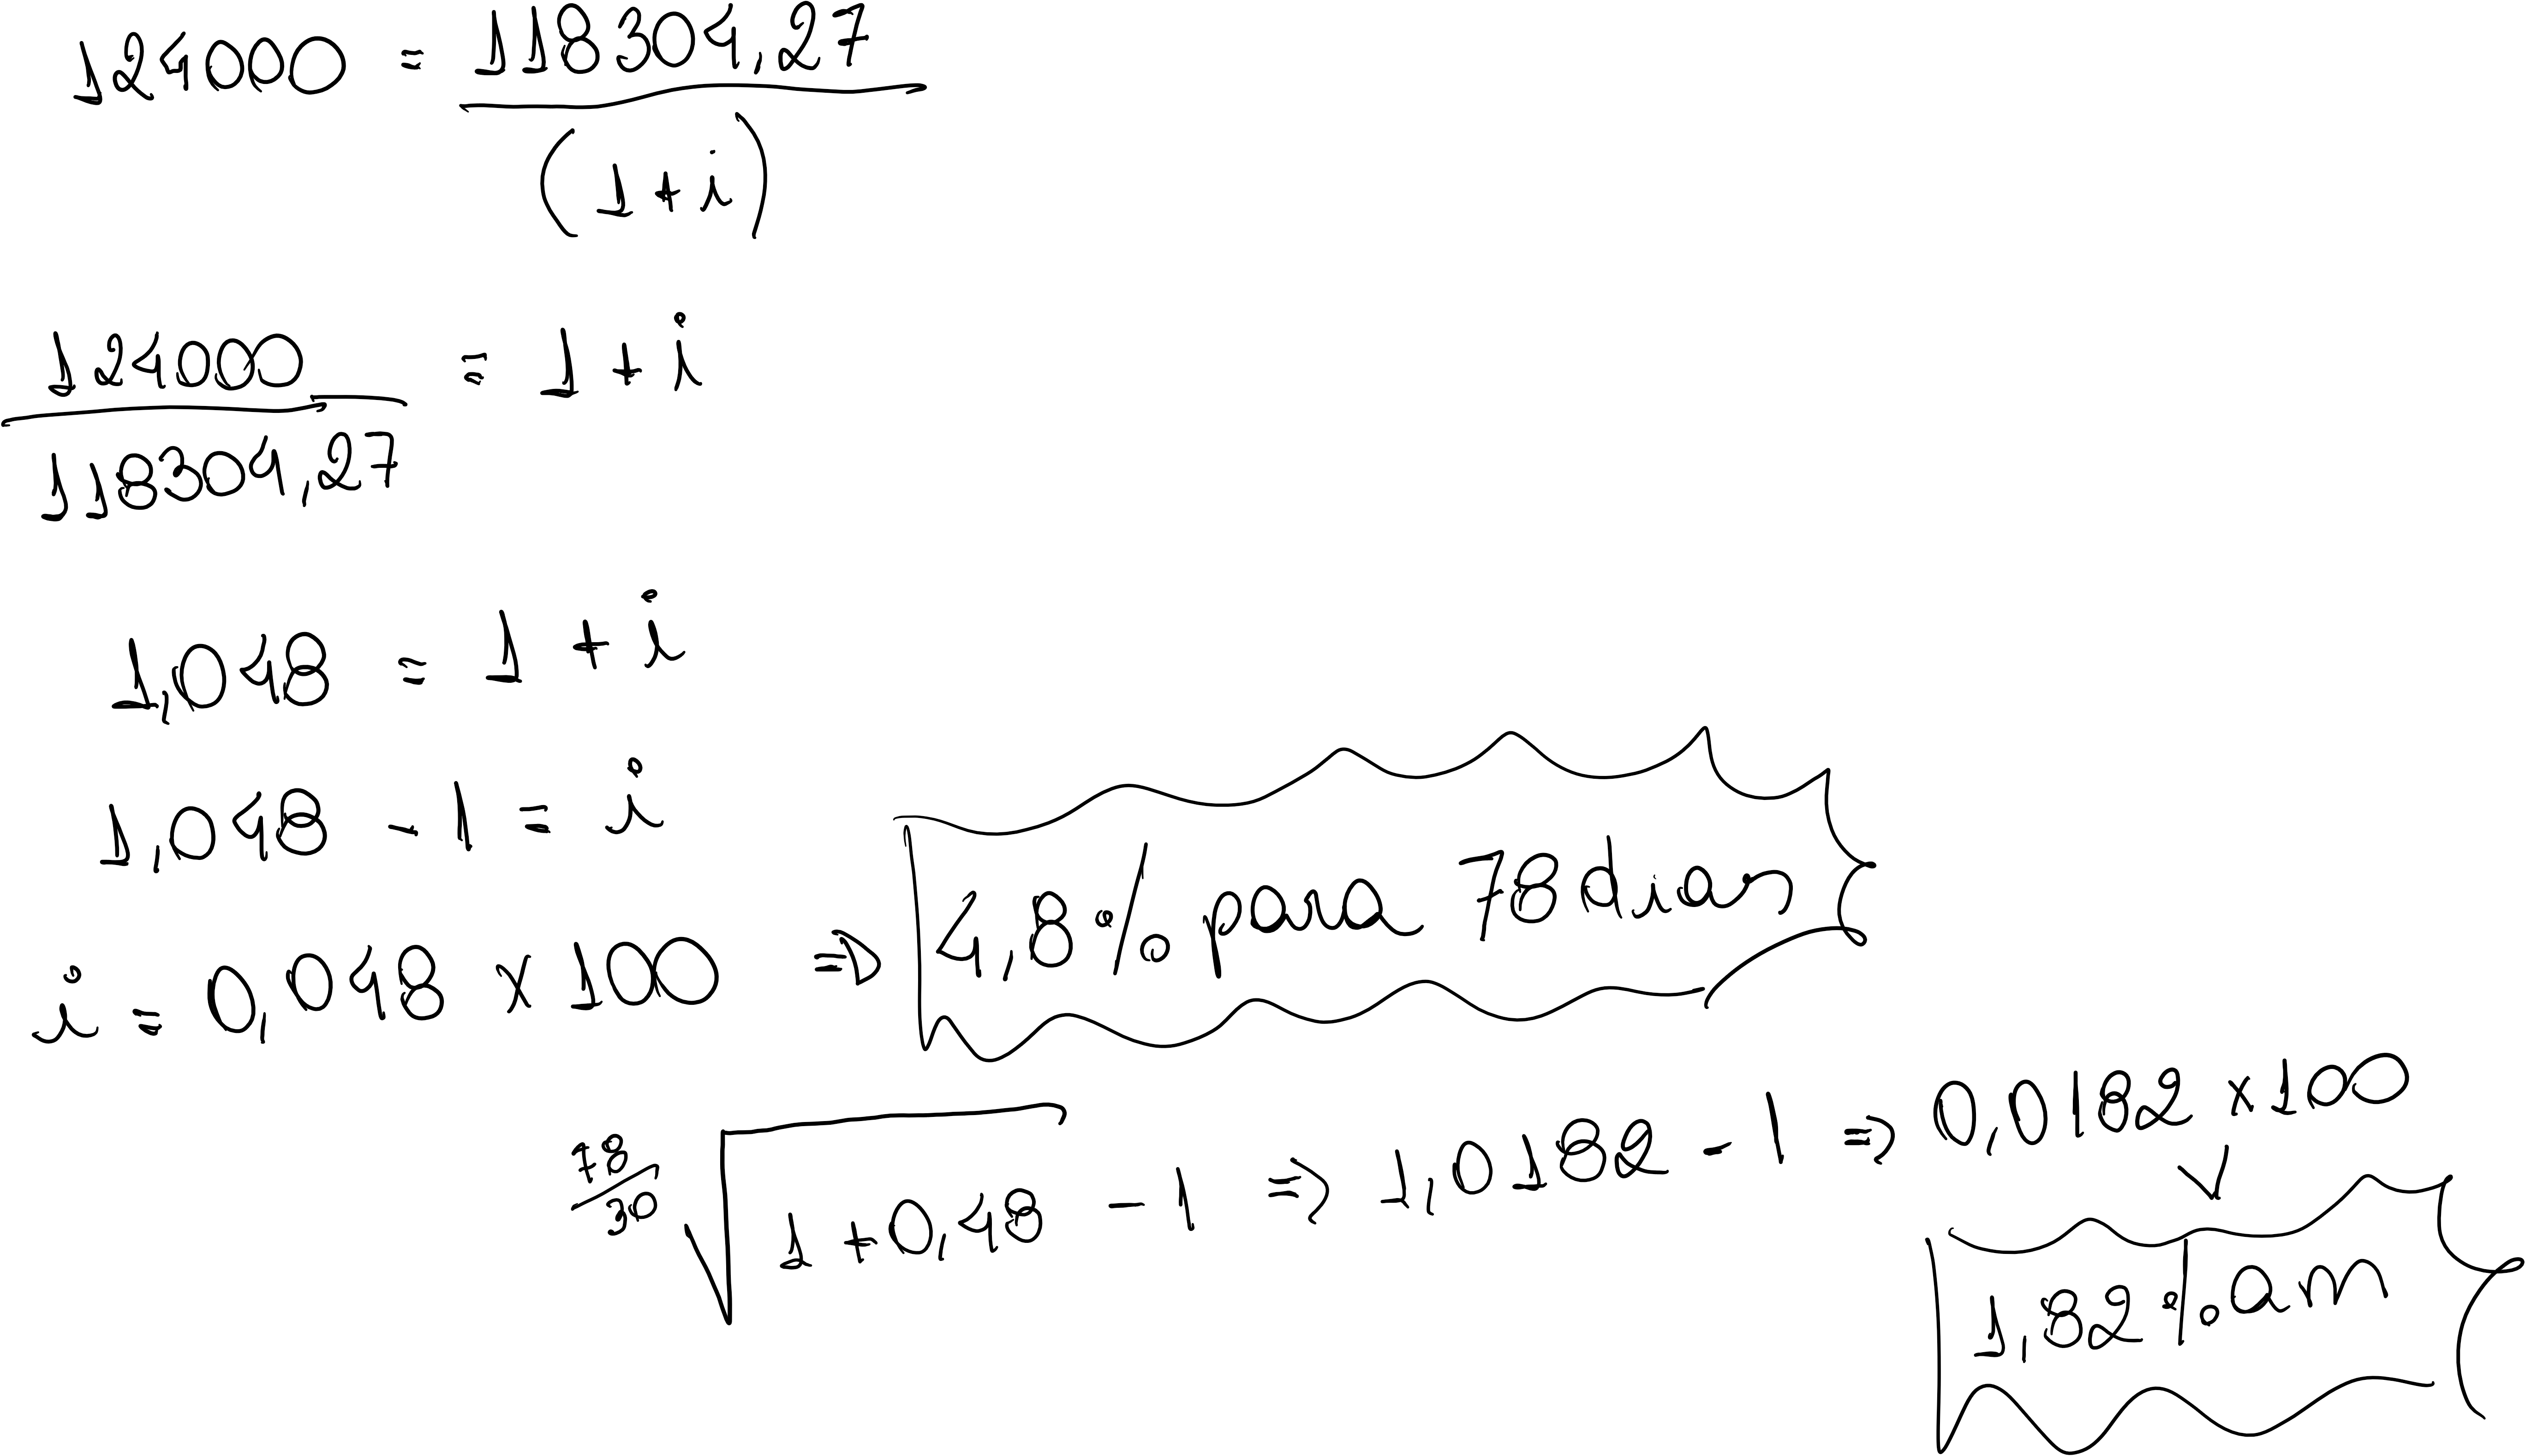 124000 = 118304,27
(1+i)
124000 = 1+i
118304,27
1,048 = 1+i
1,048 - 1 = i
i = 0,048 x 100 => 4,8% para 78 dias
78/30 √1+0,48 - 1 => 1,0182 - 1 => 0,0182 x 100
1,82% am